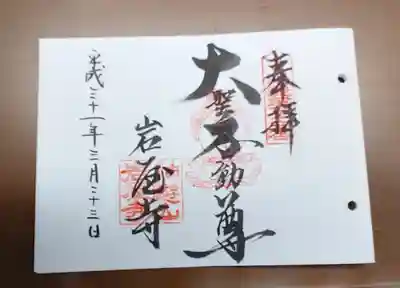 奉拝
大聖不動尊
岩屋寺
平成三十一年三月二十三日